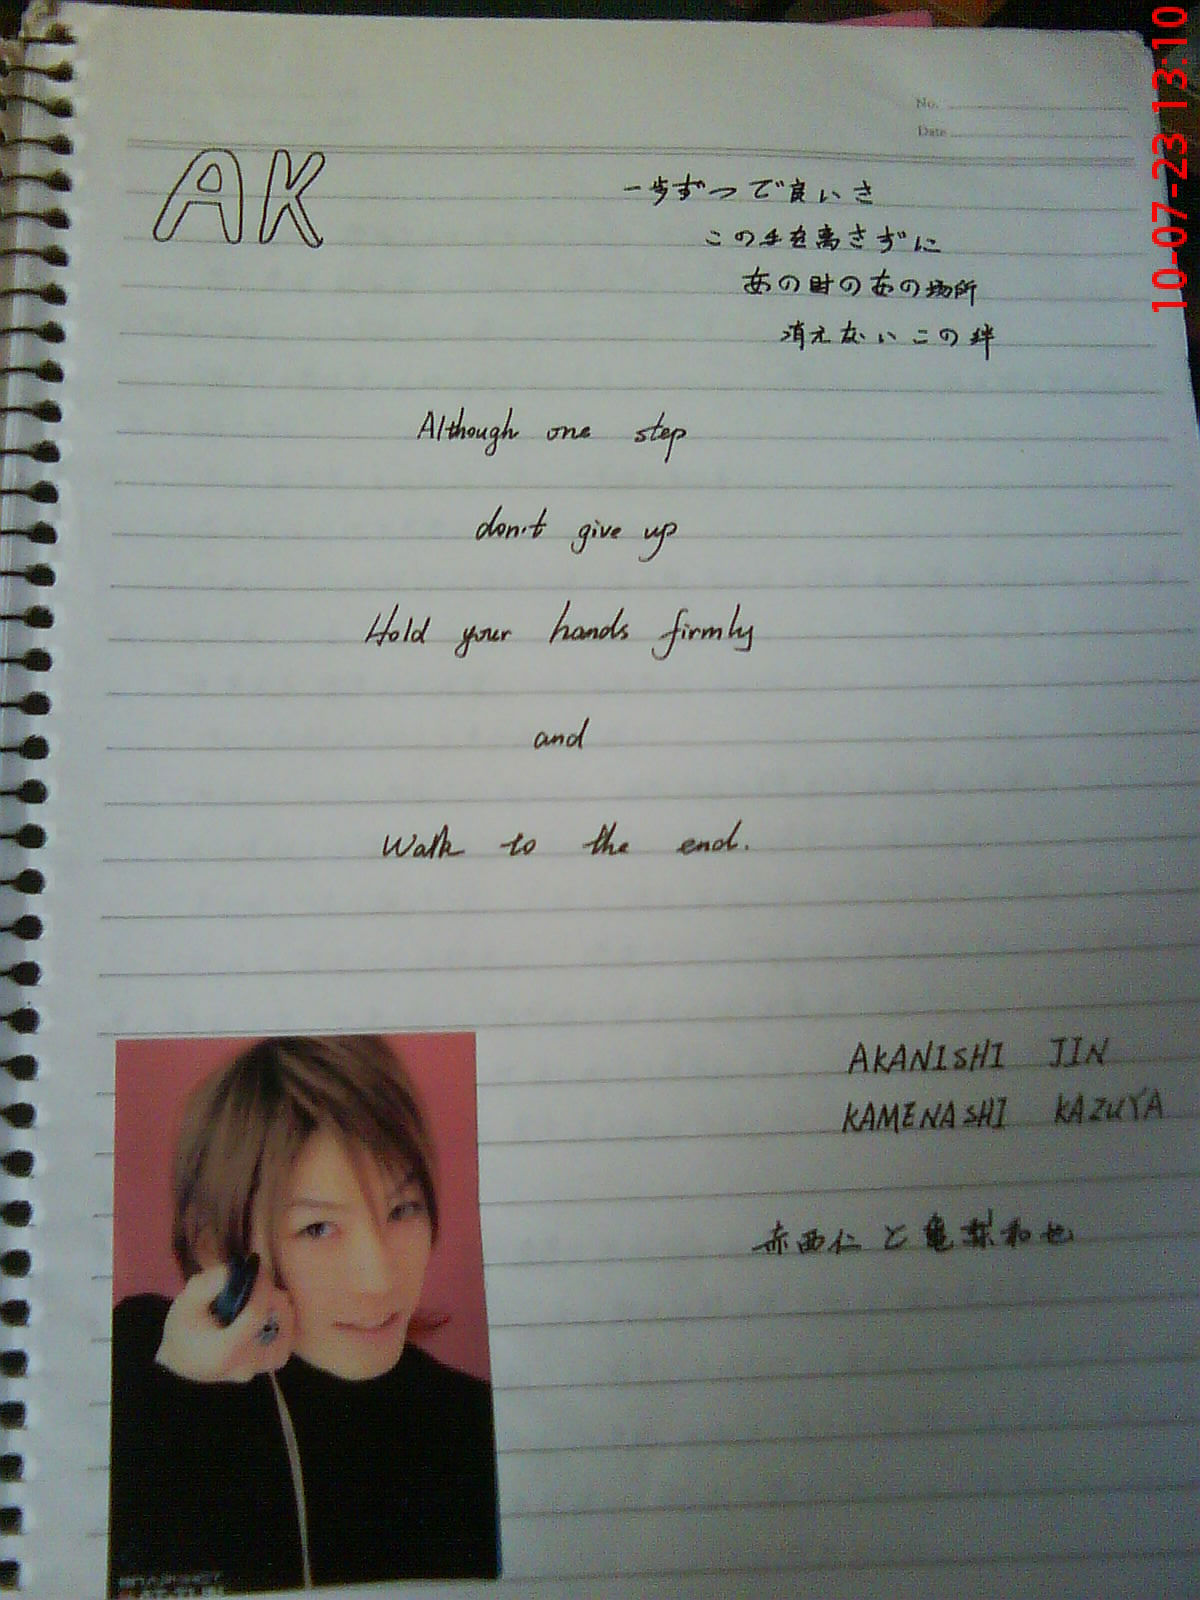 10-07-23 13:10
No.
Date
AK
一歩ずつで良いさ
この手を离さずに
あの时のあの場所
消えないこの絆
Although one step
don't give up
Hold your hands firmly
and
Walk to the end.
AKANISHI JIN
KAMENASHI KAZUYA
赤西仁と亀梨和也